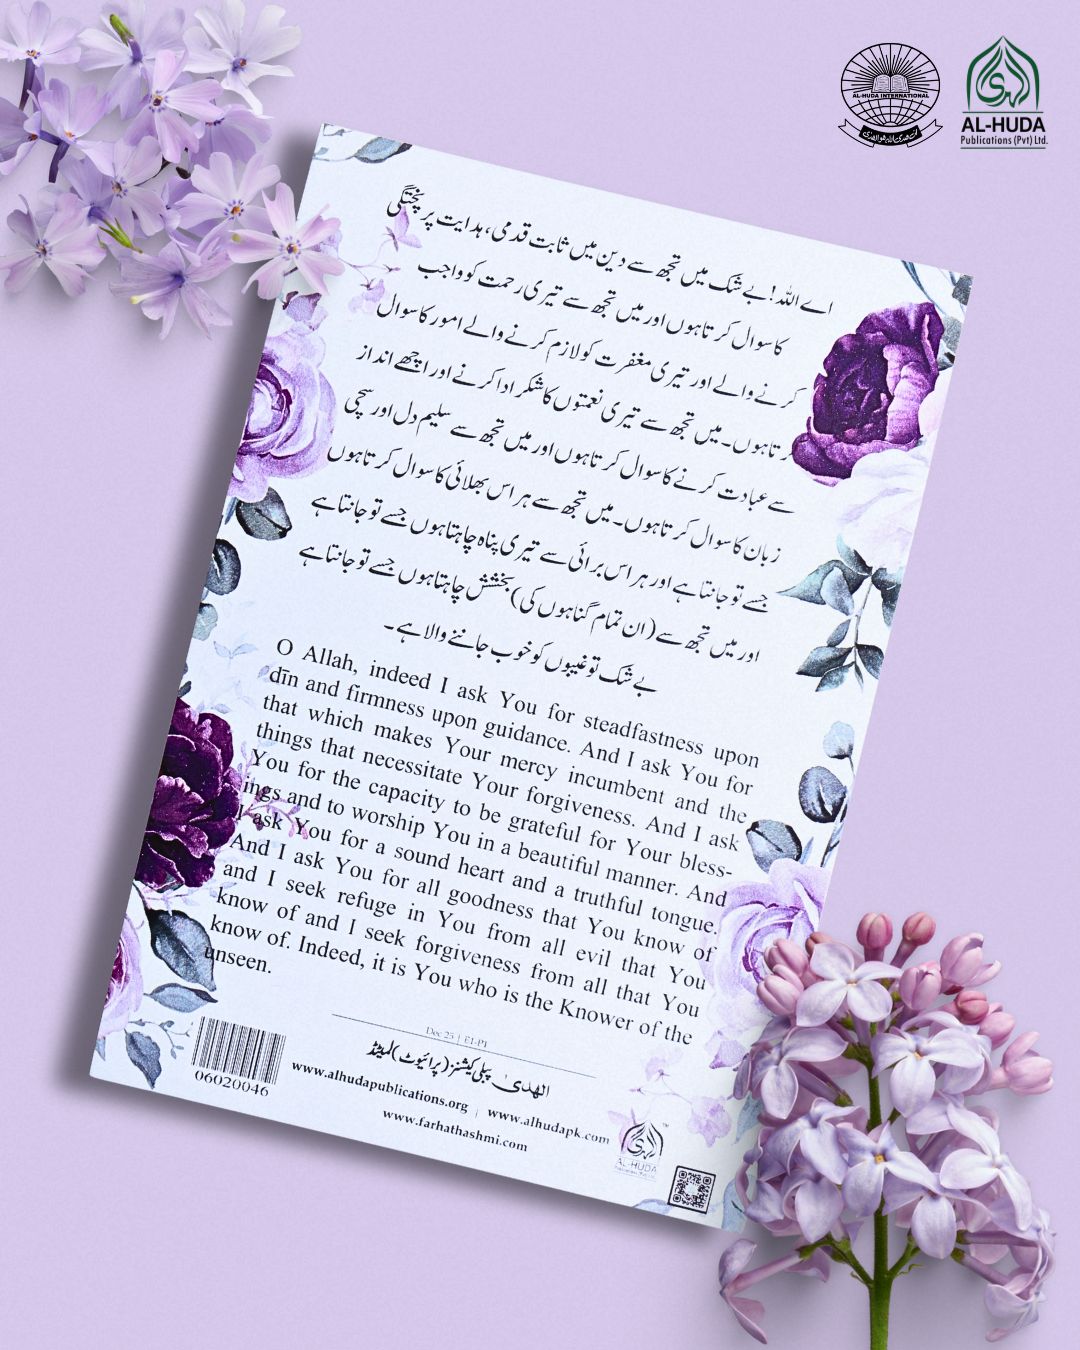 AL-HUDA INTERNATIONAL
AL-HUDA
Publications (Pvt) Ltd.
اے اللہ! بے شک میں تجھ سے دین میں ثابت قدمی، ہدایت پر پختگی
کا سوال کرتا ہوں اور میں تجھ سے تیری رحمت کو واجب
کرنے والے اور تیری مغفرت کو لازم کرنے والے امور کا سوال
کرتا ہوں۔ میں تجھ سے تیری نعمتوں کا شکر ادا کرنے اور اچھے انداز
سے عبادت کرنے کا سوال کرتا ہوں اور میں تجھ سے سلیم دل اور سچی
زبان کا سوال کرتا ہوں۔ میں تجھ سے ہر اس بھلائی کا سوال کرتا ہوں
جسے تو جانتا ہے اور ہر اس برائی سے تیری پناہ چاہتا ہوں جسے تو جانتا ہے
اور میں تجھ سے (ان تمام گناہوں کی) بخشش چاہتا ہوں جسے تو جانتا ہے
بے شک تو غیبوں کو خوب جاننے والا ہے۔
O Allah, indeed I ask You for steadfastness upon
dīn and firmness upon guidance. And I ask You for
that which makes Your mercy incumbent and the
things that necessitate Your forgiveness. And I ask
You for the capacity to be grateful for Your bless-
ings and to worship You in a beautiful manner. And
I ask You for a sound heart and a truthful tongue.
And I ask You for all goodness that You know of
and I seek refuge in You from all evil that You
know of and I seek forgiveness from all that You
know of. Indeed, it is You who is the Knower of the
unseen.
Dec 25 | E1-P1
الھدیٰ پبلی کیشنز (پرائیوٹ) لمیٹڈ
www.alhudapublications.org | www.alhudapk.com
www.farhathashmi.com
06020046
AL-HUDA